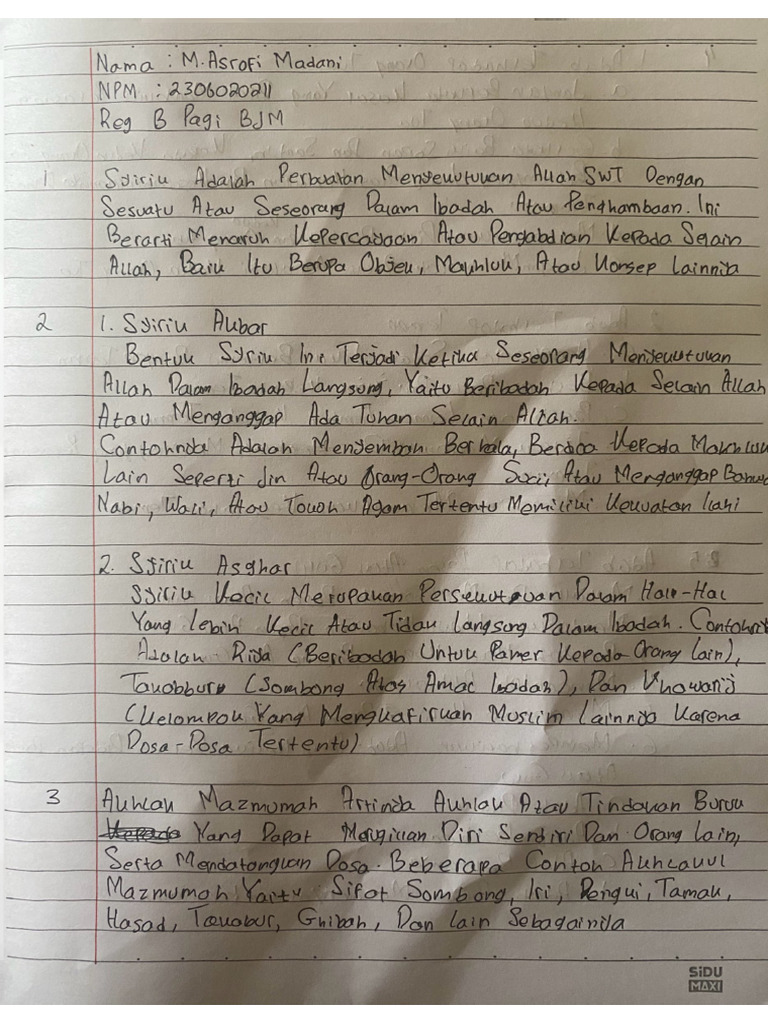 Nama : M. Asrofi Madani
NPM : 2306020211
Reg B Pagi BJM
1 Syirik Adalah Perbuatan Menyekutukan Allah SWT Dengan
Sesuatu Atau Seseorang Dalam Ibadah Atau Penghambaan. Ini
Berarti Menaruh Kepercayaan Atau Pengabdian Kepada Selain
Allah, Baik Itu Berupa Objek, Makhluk, Atau Konsep Lainnya
2 1. Syirik Akbar
Bentuk Syrik Ini Terjadi Ketika Seseorang Menyekutukan
Allah Dalam Ibadah Langsung, Yaitu Beribadah Kepada Selain Allah
Atau Menganggap Ada Tuhan Selain Allah.
Contohnya Adalah Menyembah Berhala, Berdoa Kepada Makhluk
Lain Seperti Jin Atau Orang-Orang Suci, Atau Menganggap Bahwa
Nabi, Wali, Atau Tokoh Agam Tertentu Memiliki Kekuatan Ilahi
2. Syirik Asghar
Syirik Kecil Merupakan Persekutukan Dalam Hal-Hal
Yang Lebih Kecil Atau Tidak Langsung Dalam Ibadah. Contohny
Adalah Riya (Beribadah Untuk Pamer Kepada Orang Lain),
Takabbur (Sombong Atas Amal Ibadah), Dan Khawarij
(Kelompok Yang Mengkafirkan Muslim Lainnya Karena
Dosa-Dosa Tertentu)
3 Akhlak Mazmumah Artinya Akhlak Atau Tindakan Buruk
Kepada Yang Dapat Merugikan Diri Sendiri Dan Orang Lain,
Serta Mendatangkan Dosa. Beberapa Contoh Akhlakul
Mazmumah Yaitu Sifat Sombong, Iri, Dengki, Tamak,
Hasad, Takabur, Ghibah, Dan Lain Sebagainya
SiDU
MAXI